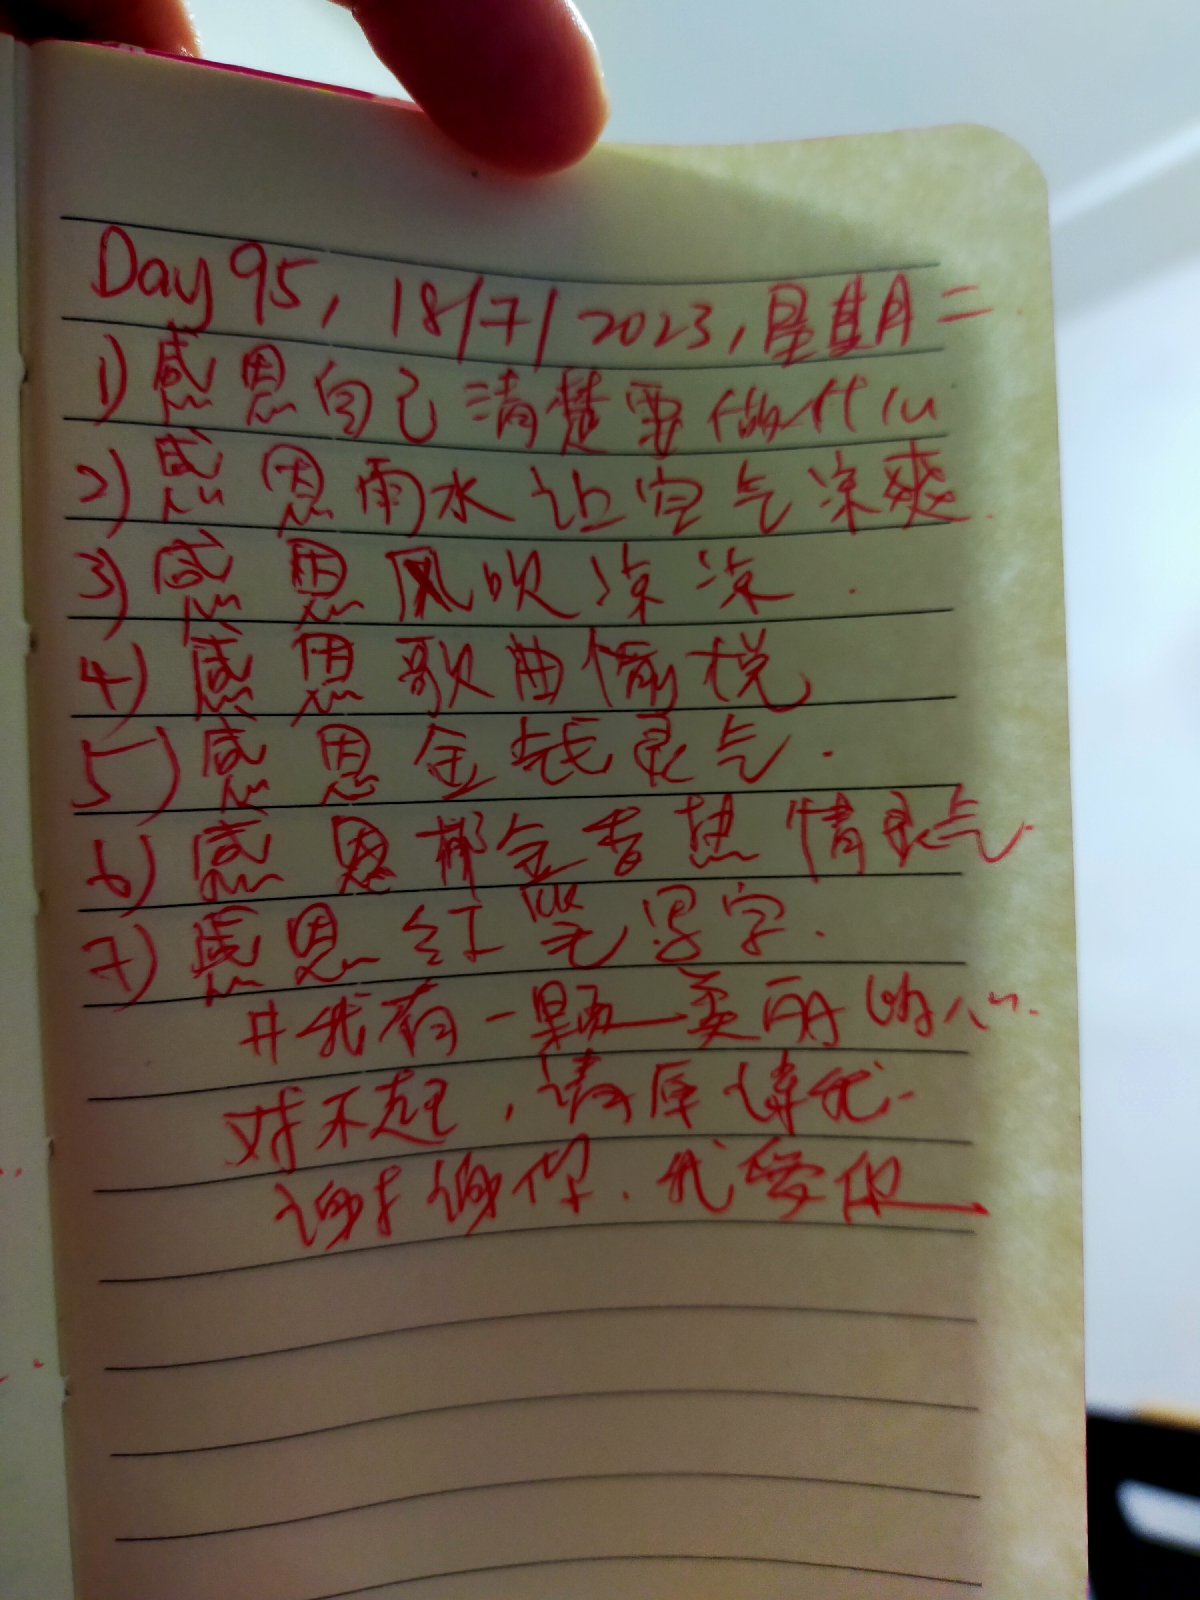 Day 95, 18/7/2023, 星期二.
1) 感恩自己清楚要做什么
2) 感恩雨水让空气凉爽.
3) 感恩风吹凉凉.
4) 感恩歌曲愉悦,
5) 感恩金钱灵气.
6) 感恩郁金香热情灵气.
7) 感恩红笔写字.
#我有一颗美丽的心.
对不起,请原谅我.
谢谢你.我爱你